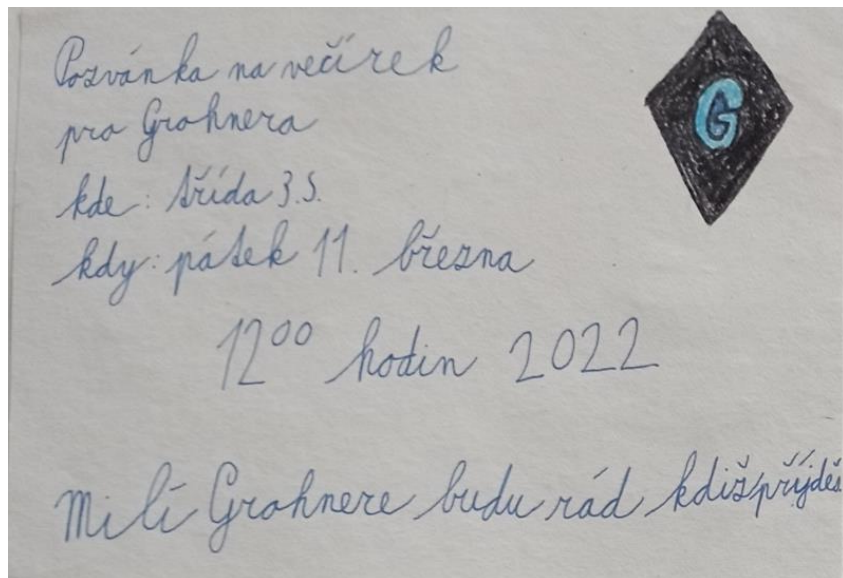 Pozvánka na večírek
G
pro Grohnera
kde: třída 3.S.
kdy: pátek 11. března
12⁰⁰ hodin 2022
Milí Grohnere budu rád kdiš příjdeš